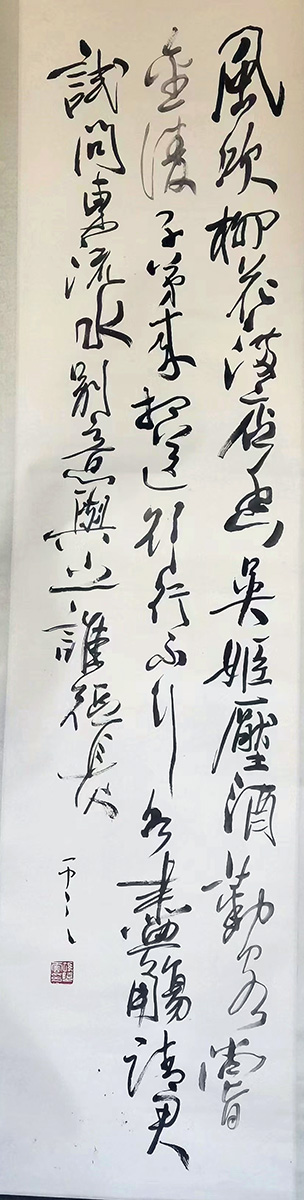 風吹柳花滿店香吳姬壓酒勸客嘗
金陵子弟來相送欲行不行各盡觴請君
試問東流水別意與之誰短長